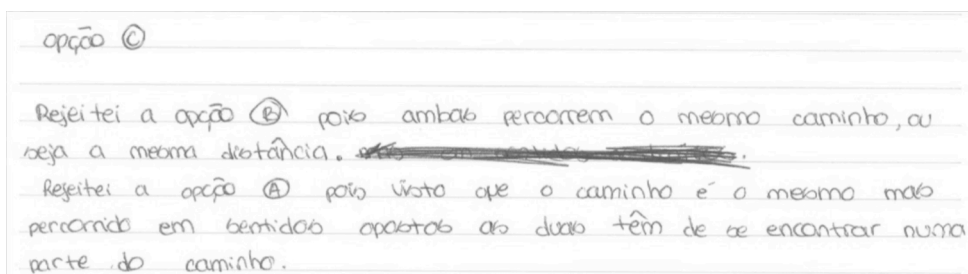 opção Ⓒ
Rejeitei a opção Ⓑ pois ambas percorrem o mesmo caminho, ou
seja a mesma distância.
Rejeitei a opção Ⓐ pois visto que o caminho é o mesmo mas
percorrido em sentidos opostos as duas têm de se encontrar numa
parte do caminho.